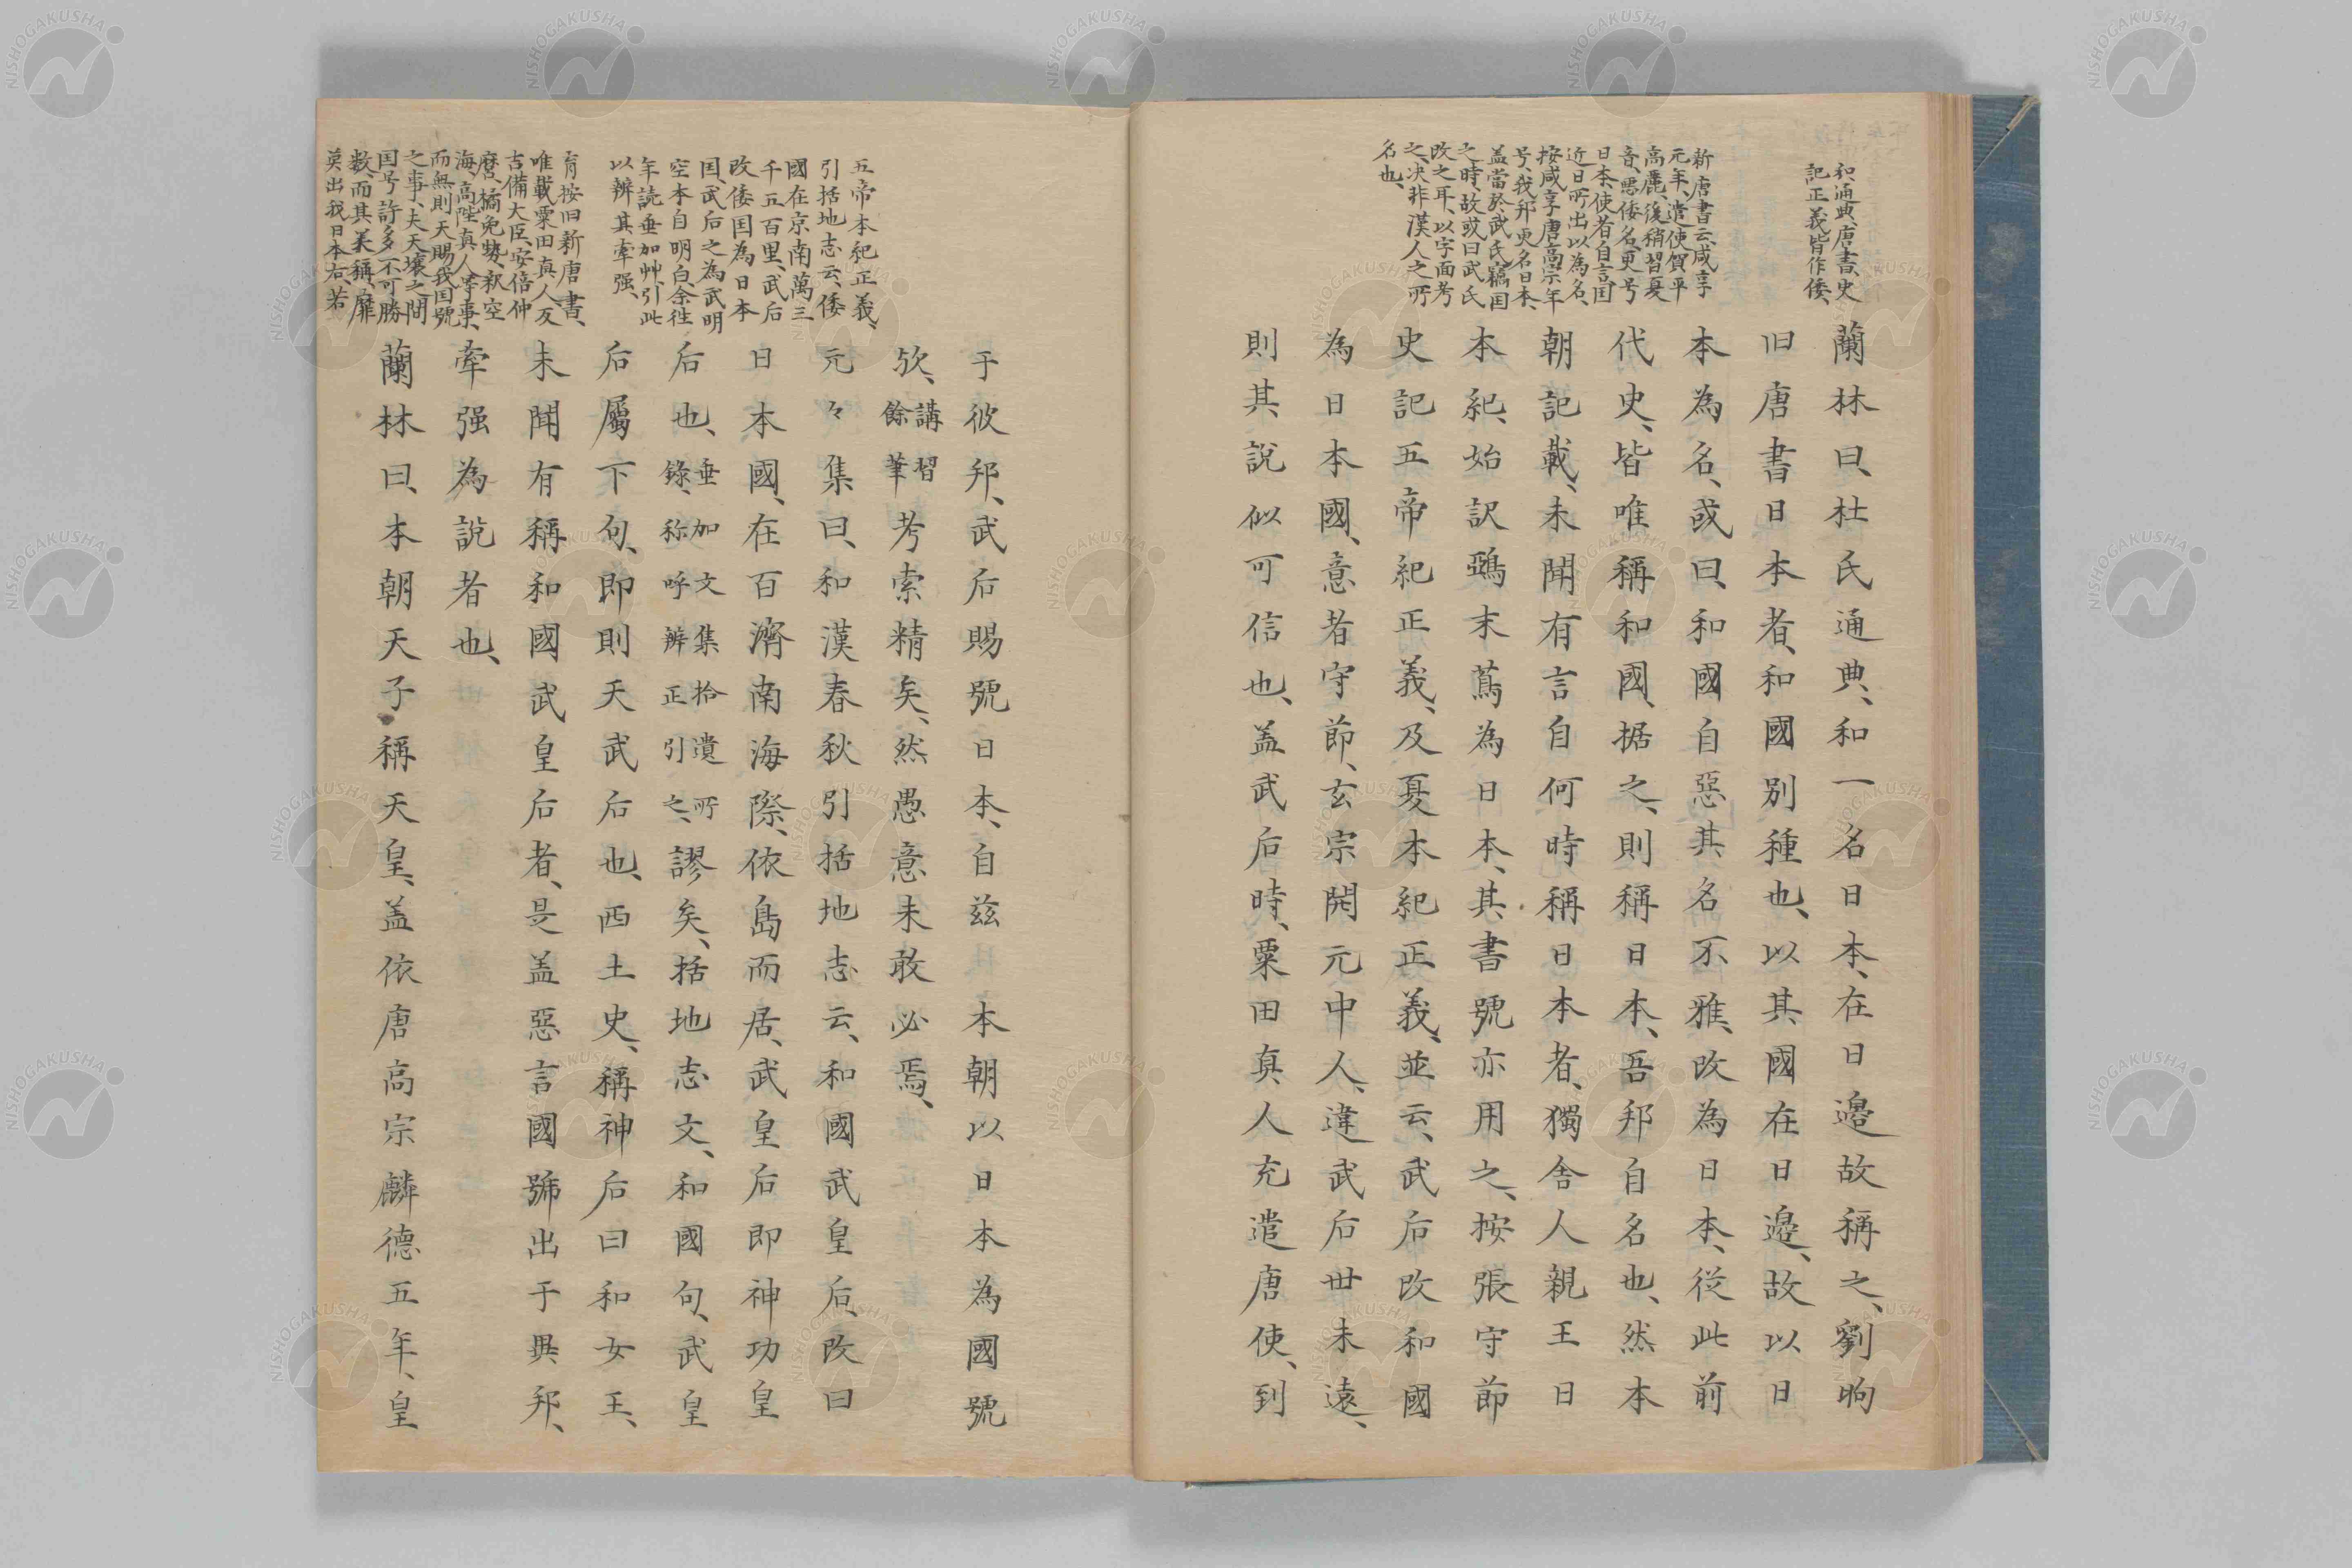 和、通典、唐書、史
記正義皆作倭、
新唐書云、咸亨
元年、遣使賀平
高麗、後稍習夏
音、悪倭名、更号
日本、使者自言、国
近日所出以為名、
按咸亨唐高宗年
号、我邦更名日本、
蓋當於武氏竊国
之時、故或曰武氏
改之耳、以字面考
之、决非漢人之所
名也、
蘭林曰、杜氏通典、和一名日本、在日邉故稱之、劉昫
旧唐書日本者、和國别種也、以其國在日邉、故以日
本為名、或曰、和國自惡其名不雅、改為日本、從此前
代史、皆唯稱和國、据之、則稱日本、吾邦自名也、然本
朝記載、未聞有言自何時稱日本者、獨舎人親王日
本紀、始訳鵶末蔦為日本、其書號亦用之、按張守節
史記五帝紀正義、及夏本紀正義、並云、武后改和國
為日本國、意者守節、玄宗開元中人、違武后世未遠、
則其説似可信也、盖武后時、粟田真人充遣唐使、到
五帝本紀正義、
引括地志云、倭
國在京南萬三
千五百里、武后
改倭国為日本
国、武后之為武明
空本自明白、余往
年読垂加艸、引此
以辨其牽强、
育按旧新唐書、
唯載粟田真人及
吉備大臣、安倍仲
麿、橘免勢、釈空
海、高陛真人等事、
而無則天賜我国號
之事、夫天壌之間
国号許多不可勝
数、而其美稱、靡
莫出我日本右、若
于彼邦、武后賜號日本、自兹　本朝以日本為國號
欤、講習餘筆考索精矣、然愚意未敢必焉、
元々集曰、和漢春秋引括地志云、和國武皇后、改曰
日本國、在百濟南海際、依島而居、武皇后即神功皇
后也、垂加文集拾遺所錄、称呼辨正引之、謬矣、括地志文、和國句、武皇
后屬下句、即則天武后也、西土史、稱神后曰和女王、
未聞有稱和國武皇后者、是盖惡言國號出于異邦、
牽强為説者也、
蘭林曰、本朝天子稱天皇、盖依唐高宗麟德五年、皇